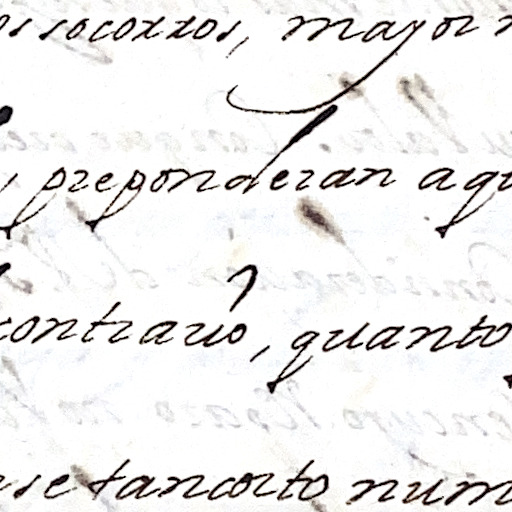 os socorros, mayor
, preponderan aqu
contrario, quanto
rse tan corto num